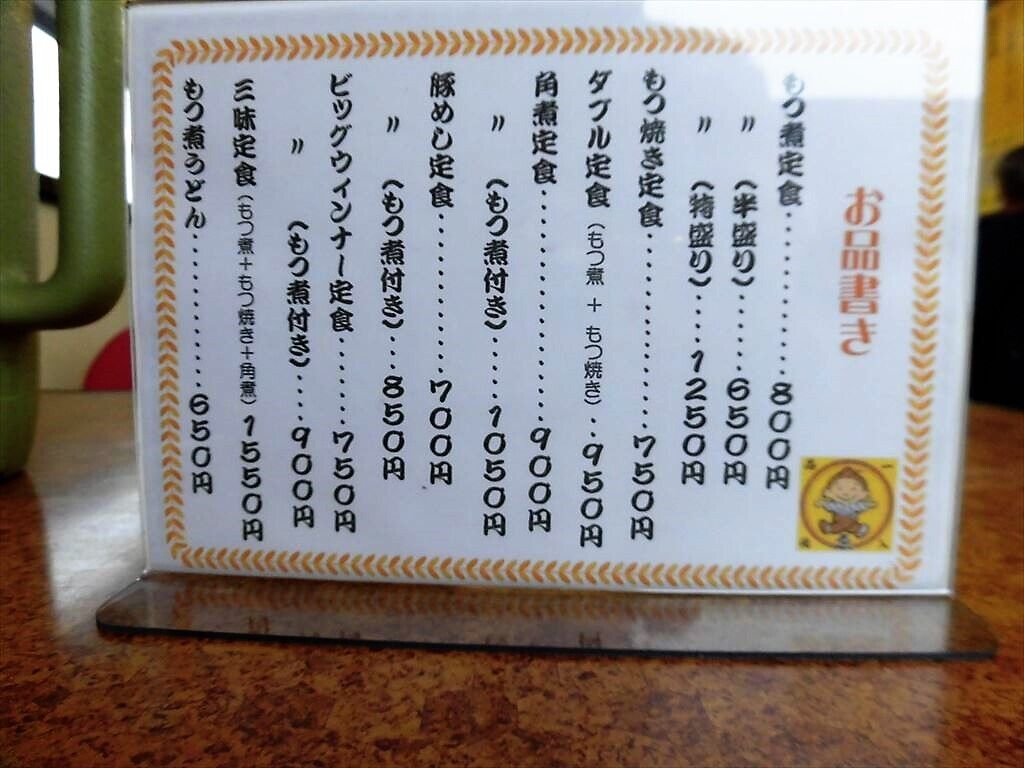 お品書き
もつ煮定食‥‥‥‥‥800円
〃 (半盛り)‥‥‥650円
〃 (特盛り)‥‥1250円
もつ焼き定食‥‥‥‥‥‥750円
ダブル定食(もつ煮 + もつ焼き)‥950円
角煮定食‥‥‥‥‥‥‥900円
〃 (もつ煮付き)‥‥1050円
豚めし定食‥‥‥‥‥700円
〃 (もつ煮付き)‥850円
ビッグウィンナー定食‥‥‥750円
〃 (もつ煮付き)‥‥900円
三昧定食(もつ煮+もつ焼き+角煮)1550円
もつ煮うどん‥‥‥‥‥650円